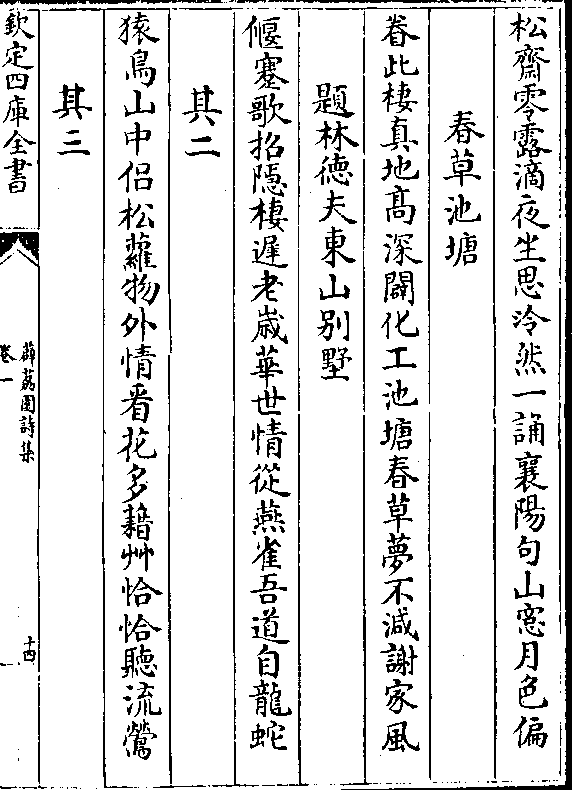 松齋零露滴夜坐思泠然一誦襄陽句山窓月色偏
春草池塘
眷此棲真地高深闢化工池塘春草夢不減謝家風
題林德夫東山别墅
偃蹇歌招隠棲遲老嵗華世情從燕雀吾道自龍蛇
其二
猿鳥山中侣松蘿物外情看花多籍艸恰恰聽流鶯
其三
欽定四庫全書
薜荔園詩集
卷一
十四